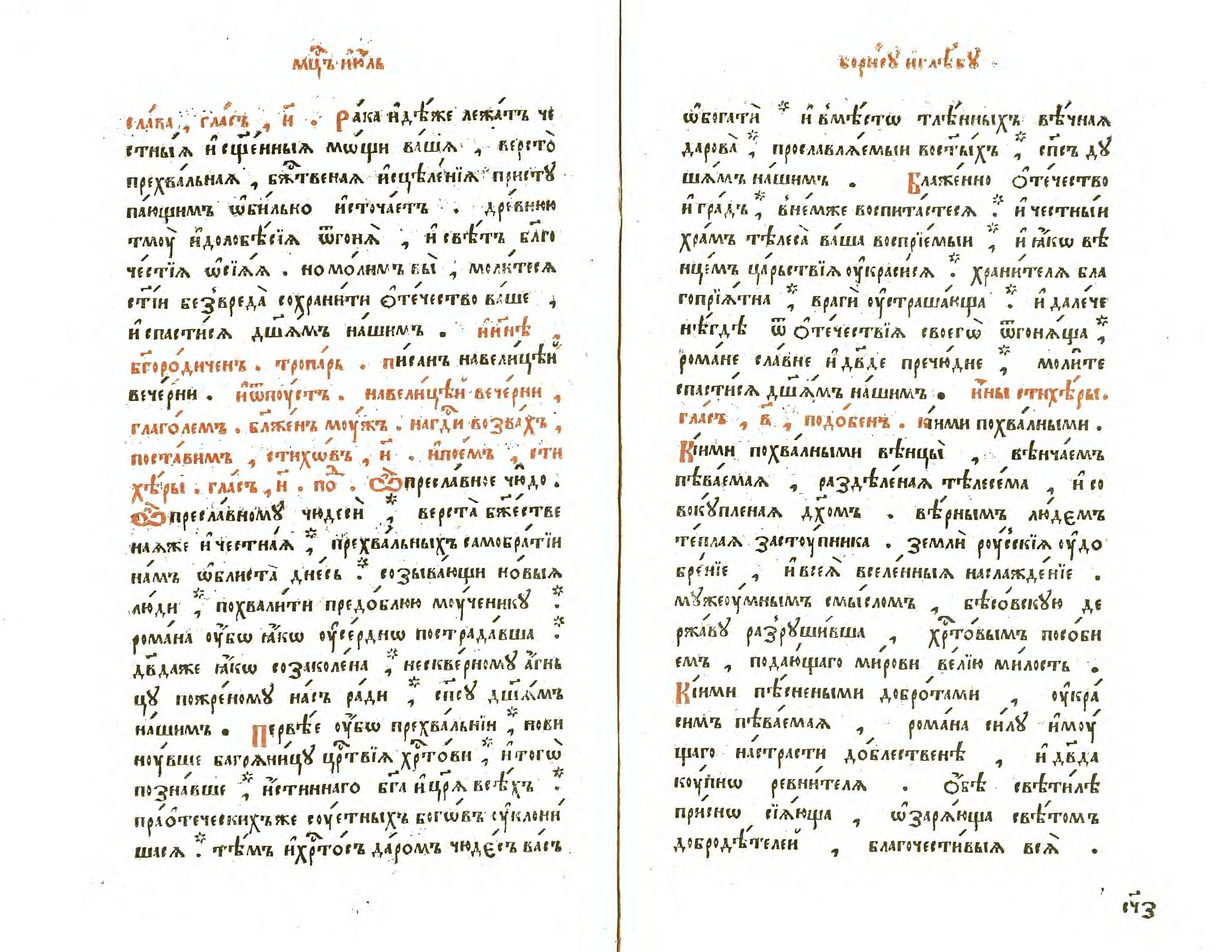 мц҃ъ і҆ю́ль
сла́ва , гла́съ , и҃ . Ра́ка и҆дѣ́же лежа́тъ че
стны́ѧ и҆ сщ҃е́нныѧ мѡ́щи ва́шѧ , версто̀
прехва́льнаѧ , бж҃твеная и҆сцѣле́нїѧ присту
па́ющимъ ѡ҆би́лько и҆сточа́етъ . дре́внюю
тмоу̀ и҆долобѣ́сїѧ ѿгонѧ̀ , и҆ свѣ́тъ бл҃го
че́стїѧ ѡ҆сїѧ́ѧ . но мо́лимъ вы̀ , моли́тесѧ
ст҃і́и без̾вреда̀ сохрани́ти ѻ҆те́чество ва́ше ,
и҆ спасти́сѧ дш҃а́мъ на́шимъ . и҆ ни́нѣ ,
бг҃оро́диченъ . тропа́рь . пи́санъ навели́цѣй
вече́рни . и҆ ѿпоу́стъ . навели́цѣй вече́рни ,
глаго́лемъ . бл҃же́нъ моу́жъ . на гд҃и воз̾ва́хъ ,
поста́вимъ , стихо́въ , и҃ . и҆ пое́мъ , сти
хѣ́ры . гла́съ , и҃ . по҃ . Ѽ пресла́вное чю́до .
Ѽ пресла́вному чюдесѝ * верста̀ бж҃е́стве
наѧже и҆ честна́ѧ * прехва́льныхъ самобра́тїи
на́мъ ѡ҆блиста̀ дне́сь * созыва́ющи но́выѧ
лю́ди * похвали́ти предо́блюю моу́ченику *
рома́на оу҆́бѡ ꙗ҆́кѡ оу҆се́рднѡ пострада́вша *
дв҃даже ꙗ҆́кѡ созаколе́на * нескве́рному а҆́гнь
цу пожре́ному на́съ ра́ди * сп҃су дш҃а́мъ
на́шимъ . Пе́рвѣе оу҆́бѡ прехва́льнїи * нови
ноу́вше багрѧни́цу црⷭ҇твїѧ хрⷭ҇то́ви * и҆ того̀
позна́вше * и҆́стиннаго бг҃а и҆ цр҃ѧ̀ всѣ́хъ *
пра́ѻте́ческихъже соу́етныхъ бого́въ оу҆клони́
шасѧ * тѣ́мъ и҆ хрⷭ҇то́съ да́ромъ чюде́съ ва́съ
бори́су и҆ глѣ́бу
ѡ҆богатѝ * и҆ в̾мѣ́стѡ тлѣ́нныхъ вѣ́чнаѧ
дарова̀ * прославлѧ́емыи во ст҃ы́хъ * сп҃съ ду
ша́мъ на́шимъ . Блаже́нно ѻ҆те́чество
и҆ гра́дъ * в̾не́мже воспита́стесѧ * и҆ честны́и
хра́мъ тѣлеса̀ ва́ша воспрїе́мыи * и҆ ꙗ҆́кѡ вѣ
нце́мъ ца́рьствїѧ оу҆краси́сѧ * храни́телѧ бла
гоприѧ́тна * врагѝ оу҆страша́юща * и҆ дале́че
нѣ́гдѣ ѿ ѻ҆те́чествїѧ своего̀ ѿгонѧ́ща *
рома́не сла́вне и҆ дв҃де пречю́дне * моли́те
спасти́сѧ дш҃а́мъ на́шимъ . и҆́ны стихѣ́ры .
гла́съ , в҃ , подо́бенъ . ки́ими похва́лными .
Ки́ими похва́лными вѣнцы̀ , вѣнча́емъ
пѣва́емаѧ , раздѣ́ленаѧ тѣлесе́ма , и҆ со
воку́пленаѧ дх҃о́мъ . вѣ́рнымъ лю́демъ
те́плаѧ засту́пника . землѝ роу́сскїѧ оу҆до
бре́нїе , и҆ всеѧ̀ вселе́нныѧ наслажде́нїе .
мужеоу́мнымъ смы́сломъ , бѣсо́вскую де
ржа́ву раз̾руши́вша , хрⷭ҇то́вымъ посо́би
емъ , подаю́щаго ми́рови ве́лїю ми́лость .
Ки́ими пѣ́снеными добро́тами , оу҆кра
си́мъ пѣва́емаѧ , рома́на си́лу и҆моу́
щаго на стра́сти до́блественѣ , и҆ дв҃да
коу́пнѡ ревни́телѧ . ѻ҆́бѣ свѣти́лѣ
при́снѡ сїѧ́юща , ѡ҆зарѧ́юща свѣ́томъ
добродѣ́телей , благочести́выѧ всѧ̀ .
сч҃з